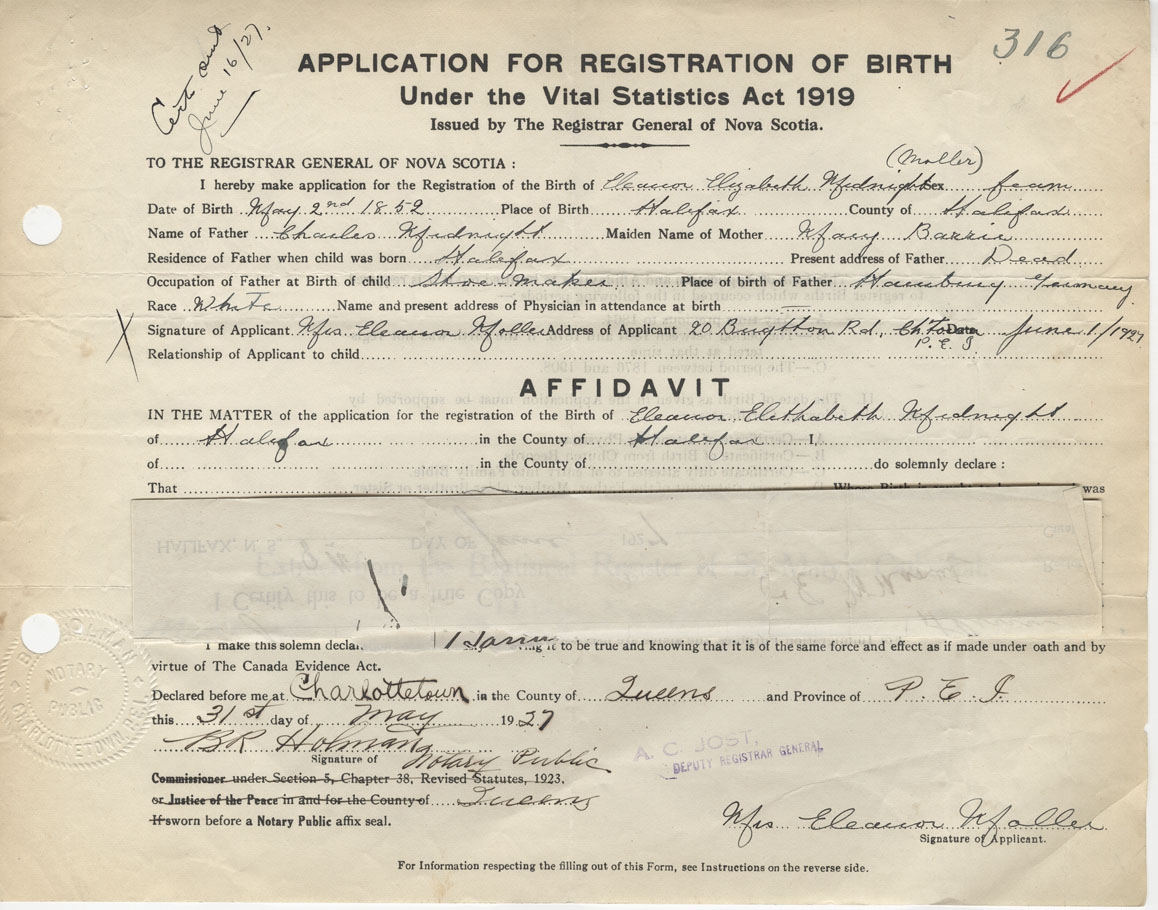 Cert sent
June 16/27.
316
APPLICATION FOR REGISTRATION OF BIRTH
Under the Vital Statistics Act 1919
Issued by The Registrar General of Nova Scotia.
TO THE REGISTRAR GENERAL OF NOVA SCOTIA :
(Moller)
I hereby make application for the Registration of the Birth of Eleanor Elizabeth Midnight Sex feam
Date of Birth May 2nd 1852 Place of Birth Halifax County of Halifax
Name of Father Charles Midnight Maiden Name of Mother Mary Barrie
Residence of Father when child was born Halifax Present address of Father Dead
Occupation of Father at Birth of child Shoe-maker Place of birth of Father Hamburg Germany
Race White Name and present address of Physician in attendance at birth
X Signature of Applicant Mrs Eleanor Moller Address of Applicant 20 Brighton Rd, Ch'town Date June 1/1927
P. E. I
Relationship of Applicant to child
AFFIDAVIT
IN THE MATTER of the application for the registration of the Birth of Eleanor Elithabeth Midnight
of Halifax in the County of Halifax I,
of in the County of do solemnly declare :
That was
HALIFAX, N. S. DAY OF June 192
I Certify this to be a True Copy
I make this solemn declar ing it to be true and knowing that it is of the same force and effect as if made under oath and by
virtue of The Canada Evidence Act.
Declared before me at Charlottetown in the County of Queens and Province of P. E. I.
this 31st day of May 1927
BR Holman
Signature of Notary Public
A. C. JOST,
DEPUTY REGISTRAR GENERAL
Commissioner under Section 5, Chapter 38, Revised Statutes, 1923.
or Justice of the Peace in and for the County of Queens
If sworn before a Notary Public affix seal.
Mrs Eleanor Moller
Signature of Applicant.
For Information respecting the filling out of this Form, see Instructions on the reverse side.
NOTARY
PUBLIC
HOLMAN
CHARLOTTETOWN